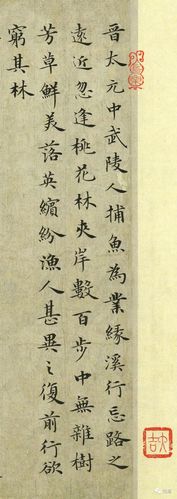 晉太元中武陵人捕魚為業緣溪行忘路之
遠近忽逢桃花林夾岸數百步中無雜樹
芳草鮮美落英繽紛漁人甚異之復前行欲
窮其林